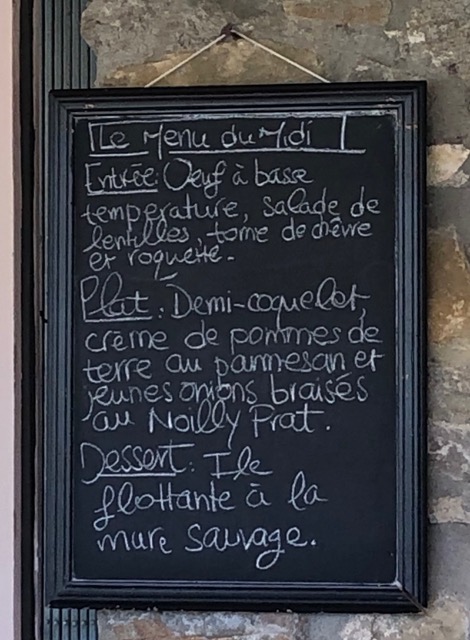 Le Menu du Midi
Entrée: Oeuf à basse
température, salade de
lentilles, tome de chèvre
et roquette.
Plat: Demi-coquelet,
crème de pommes de
terre au parmesan et
jeunes onions braisés
au Noilly Prat.
Dessert: Ile
flottante à la
mure sauvage.